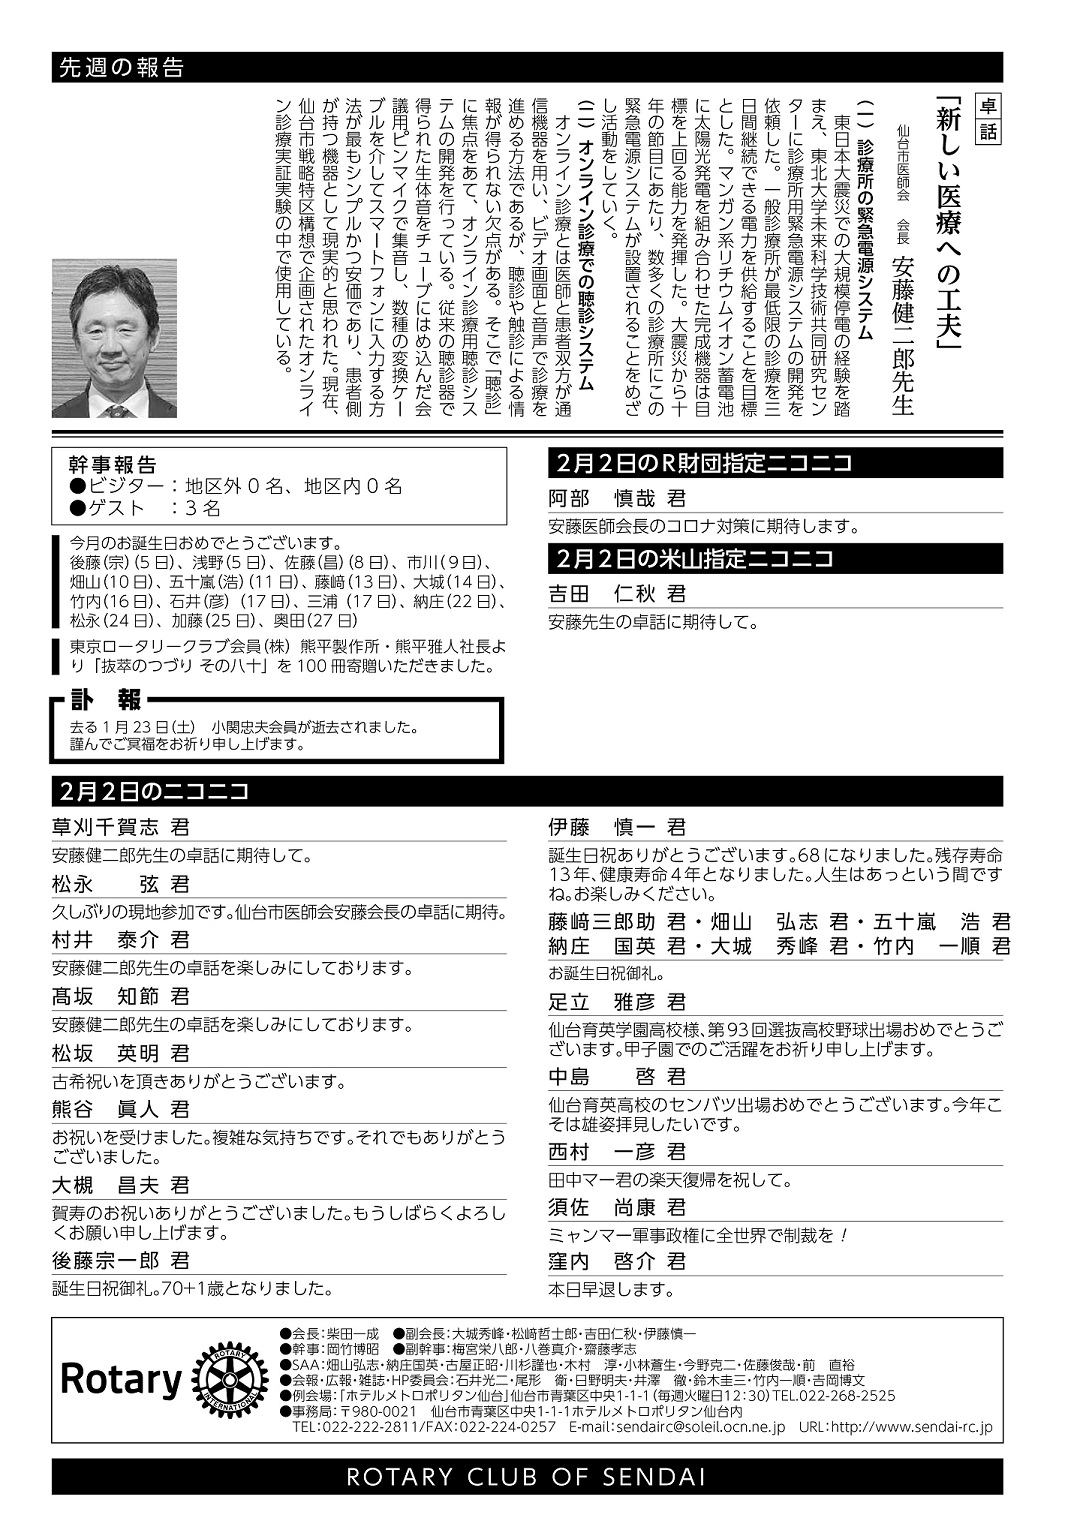 先週の報告
卓話
「新しい医療への工夫」
仙台市医師会　会長　安藤健二郎先生
(一) 診療所の緊急電源システム
　東日本大震災での大規模停電の経験を踏
まえ、東北大学未来科学技術共同研究セン
ターに診療所用緊急電源システムの開発を
依頼した。一般診療所が最低限の診療を三
日間継続できる電力を供給することを目標
とした。マンガン系リチウムイオン蓄電池
に太陽光発電を組み合わせた完成機器は目
標を上回る能力を発揮した。大震災から十
年の節目にあたり、数多くの診療所にこの
緊急電源システムが設置されることをめざ
し活動をしていく。
(二) オンライン診療での聴診システム
　オンライン診療とは医師と患者双方が通
信機器を用い、ビデオ画面と音声で診療を
進める方法であるが、聴診や触診による情
報が得られない欠点がある。そこで「聴診」
に焦点をあて、オンライン診療用聴診シス
テムの開発を行っている。従来の聴診器で
得られた生体音をチューブにはめ込んだ会
議用ピンマイクで集音し、数種の変換ケー
ブルを介してスマートフォンに入力する方
法が最もシンプルかつ安価であり、患者側
が持つ機器として現実的と思われた。現在、
仙台市戦略特区構想で企画されたオンライ
ン診療実証実験の中で使用している。
幹事報告
●ビジター：地区外０名、地区内０名
●ゲスト　：３名
今月のお誕生日おめでとうございます。
後藤(宗)(５日)、浅野(５日)、佐藤(昌)(８日)、市川(９日)、
畑山(10日)、五十嵐(浩)(11日)、藤﨑(13日)、大城(14日)、
竹内(16日)、石井(彦)（17日）、三浦（17日）、納庄(22日)、
松永(24日)、加藤(25日)、奥田(27日)
東京ロータリークラブ会員(株) 熊平製作所・熊平雅人社長よ
り「抜萃のつづり その八十」を100冊寄贈いただきました。
訃　報
去る１月23日(土)　小関忠夫会員が逝去されました。
謹んでご冥福をお祈り申し上げます。
２月２日のＲ財団指定ニコニコ
阿部　慎哉 君
安藤医師会長のコロナ対策に期待します。
２月２日の米山指定ニコニコ
吉田　仁秋 君
安藤先生の卓話に期待して。
２月２日のニコニコ
草刈千賀志 君
安藤健二郎先生の卓話に期待して。
松永　　弦 君
久しぶりの現地参加です。仙台市医師会安藤会長の卓話に期待。
村井　泰介 君
安藤健二郎先生の卓話を楽しみにしております。
髙坂　知節 君
安藤健二郎先生の卓話を楽しみにしております。
松坂　英明 君
古希祝いを頂きありがとうございます。
熊谷　眞人 君
お祝いを受けました。複雑な気持ちです。それでもありがとう
ございました。
大槻　昌夫 君
賀寿のお祝いありがとうございました。もうしばらくよろし
くお願い申し上げます。
後藤宗一郎 君
誕生日祝御礼。70+1歳となりました。
伊藤　慎一 君
誕生日祝ありがとうございます。68になりました。残存寿命
13年、健康寿命４年となりました。人生はあっという間です
ね。お楽しみください。
藤﨑三郎助 君・畑山　弘志 君・五十嵐　浩 君
納庄　国英 君・大城　秀峰 君・竹内　一順 君
お誕生日祝御礼。
足立　雅彦 君
仙台育英学園高校様、第93回選抜高校野球出場おめでとうご
ざいます。甲子園でのご活躍をお祈り申し上げます。
中島　　啓 君
仙台育英高校のセンバツ出場おめでとうございます。今年こ
そは雄姿拝見したいです。
西村　一彦 君
田中マー君の楽天復帰を祝して。
須佐　尚康 君
ミャンマー軍事政権に全世界で制裁を！
窪内　啓介 君
本日早退します。
Rotary
ROTARY
INTERNATIONAL
●会長：柴田一成　●副会長：大城秀峰・松﨑哲士郎・吉田仁秋・伊藤慎一
●幹事：岡竹博昭　●副幹事：梅宮栄八郎・八巻真介・齋藤孝志
●SAA：畑山弘志・納庄国英・古屋正昭・川杉謹也・木村　淳・小林蒼生・今野克二・佐藤俊哉・前　直裕
●会報・広報・雑誌・HP委員会：石井光二・尾形　衛・日野明夫・井澤　徹・鈴木圭三・竹内一順・吉岡博文
●例会場：「ホテルメトロポリタン仙台」仙台市青葉区中央1-1-1（毎週火曜日12：30）TEL.022-268-2525
●事務局：〒980-0021　仙台市青葉区中央1-1-1ホテルメトロポリタン仙台内
TEL：022-222-2811/FAX：022-224-0257　E-mail：sendairc@soleil.ocn.ne.jp　URL：http://www.sendai-rc.jp
ROTARY CLUB OF SENDAI